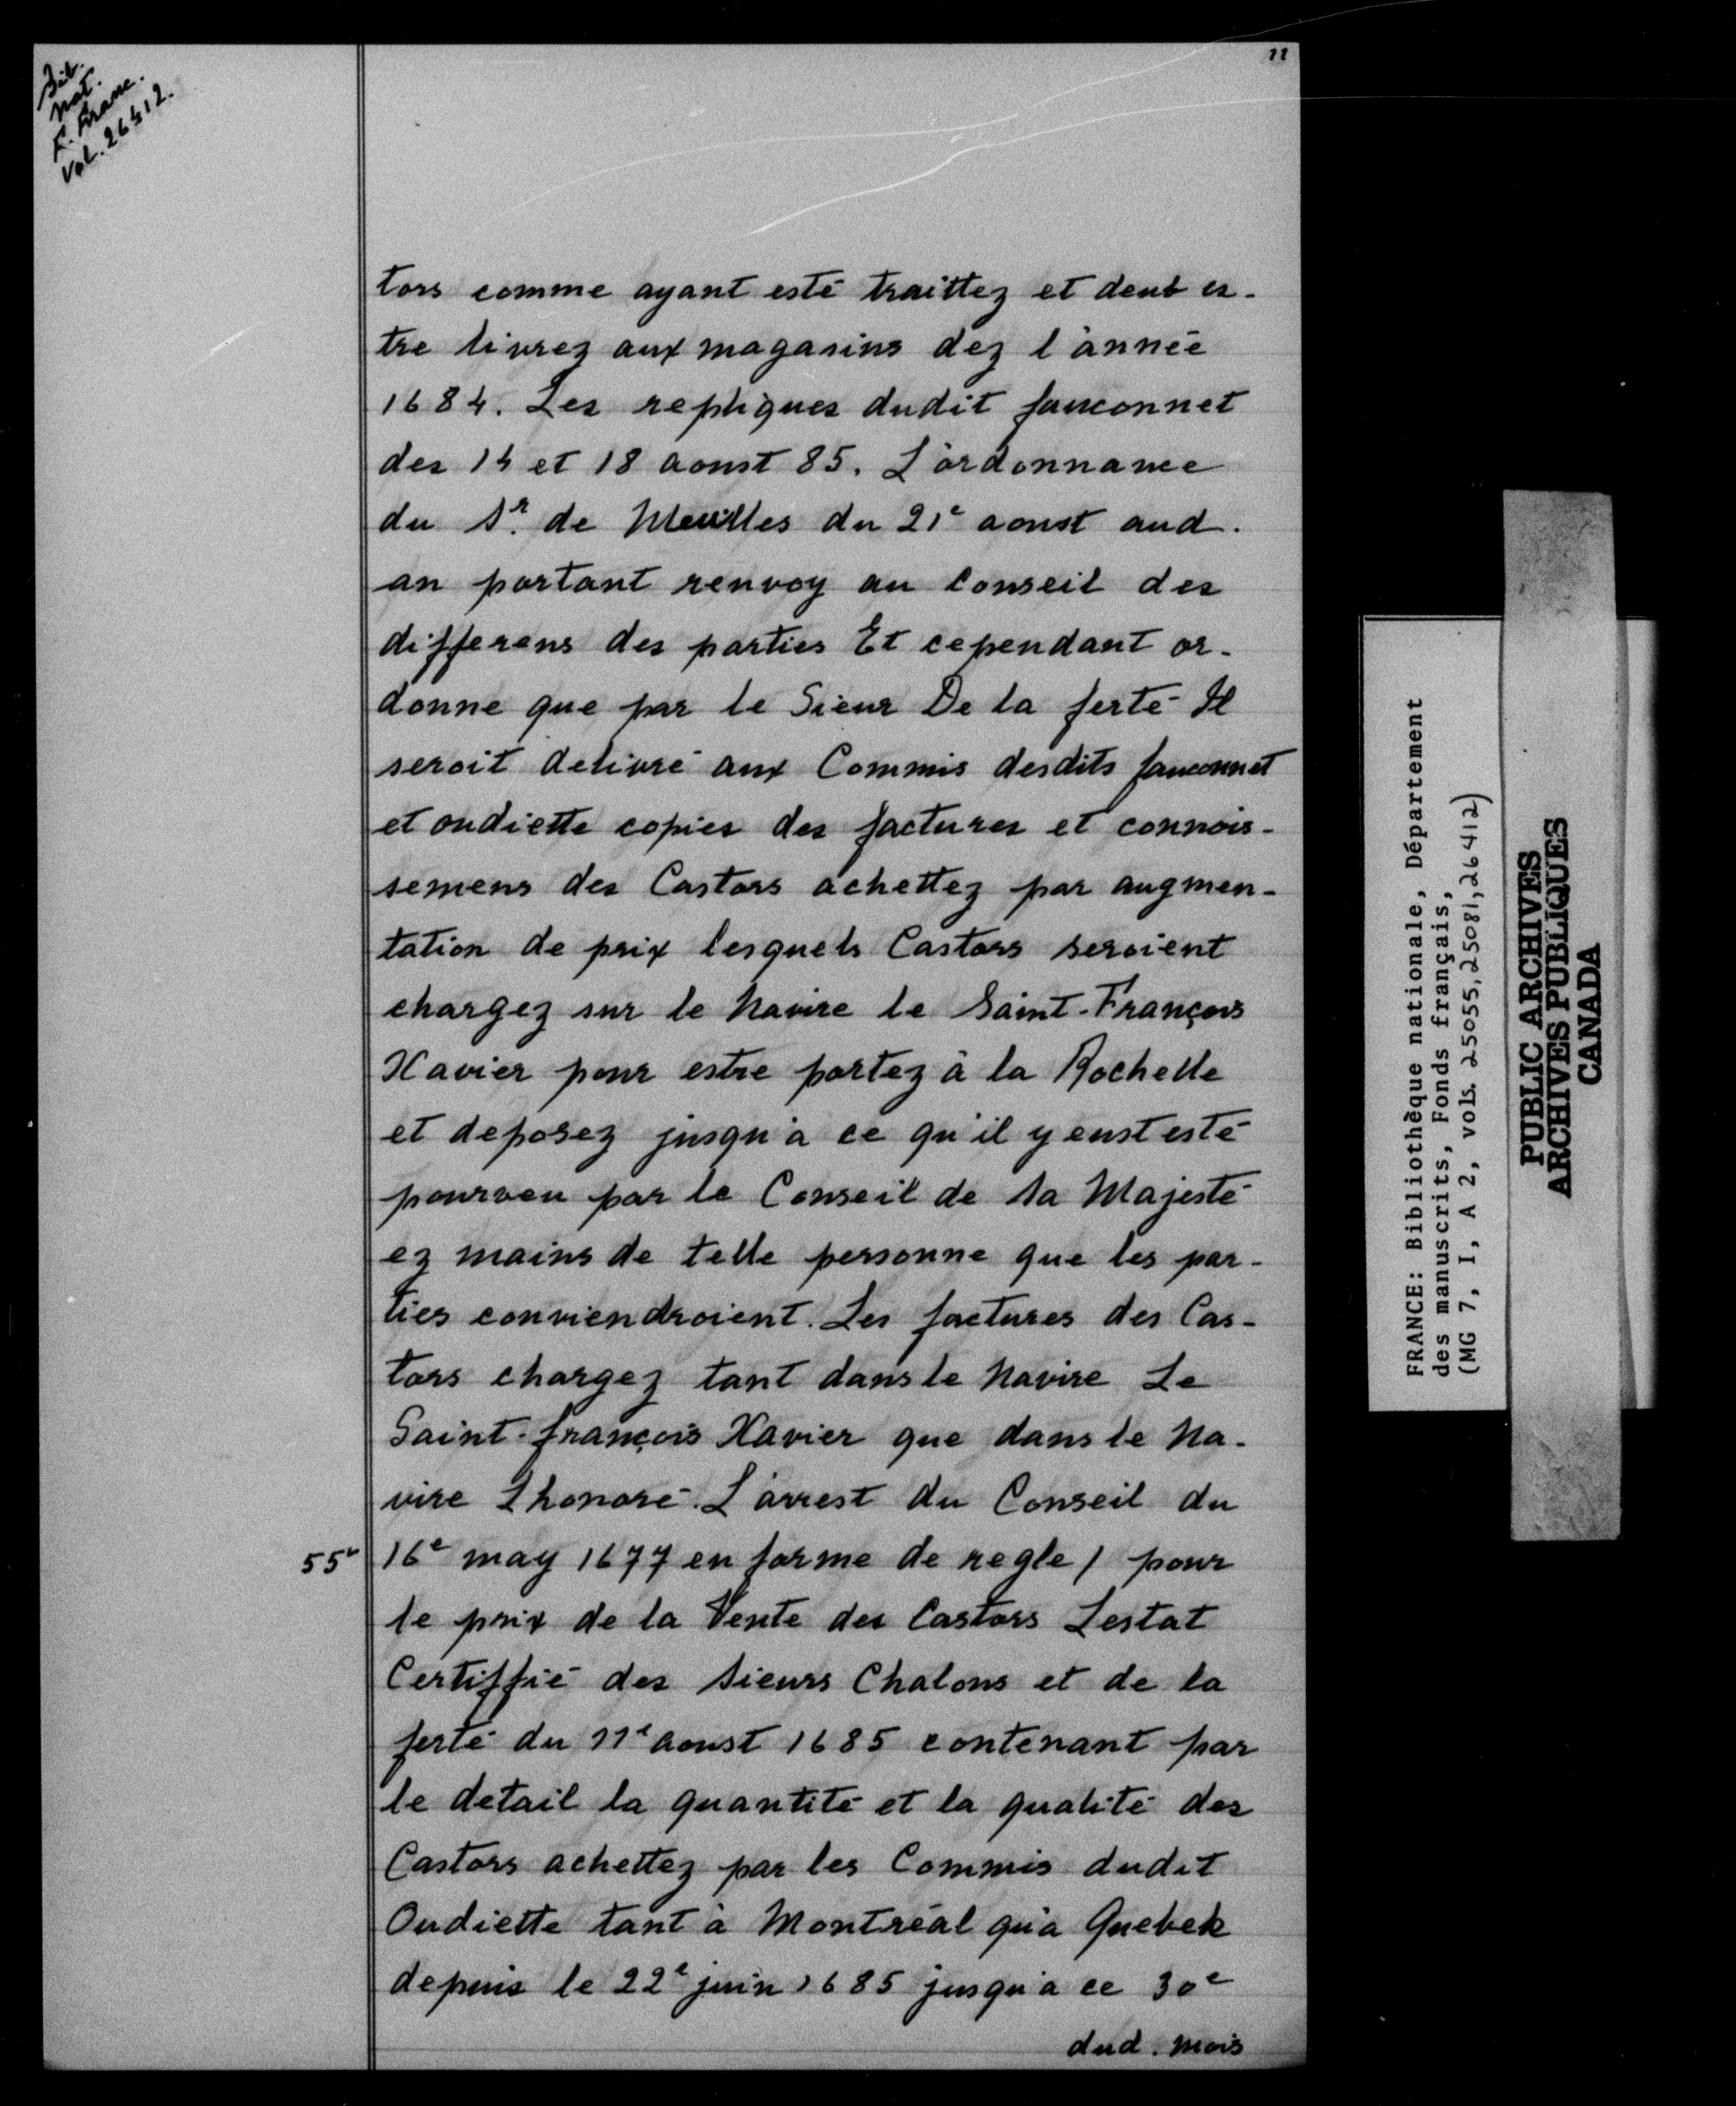 Bib.
nat.
F. Franc.
Vol. 26412.
11
tors comme ayant esté traittez et deub es-
tre livrez aux magasins dez l'année
1684. Les repliques dudit fauconnet
des 14 et 18 aoust 85. L'ordonnance
du Sr. de Meulles du 21e aoust aud.
an portant renvoy au Conseil des
differens des parties Et cependant or-
donne que par le Sieur De la ferté Il
seroit delivré aux Commis desdits fauconnet
et oudiette copies des factures et connois-
semens des Castors achettez par augmen-
tation de prix lesquels Castors seroient
chargez sur le Navire le Saint-François
Xavier pour estre portez à la Rochelle
et deposez jusqu'à ce qu'il y eust esté
pourveu par le Conseil de Sa Majesté
ez mains de telle personne que les par-
ties conviendroient. Les factures des Cas-
tors chargez tant dans le Navire Le
Saint-françois Xavier que dans le Na-
vire Lhonoré. L'arrest du Conseil du
55v 16e may 1677 en forme de regle / pour
le prix de la Vente des Castors Lestat
Certiffié des Sieurs Chalons et de la
ferté du 11e aoust 1685 contenant par
le detail la quantité et la qualité des
Castors achettez par les Commis dudit
Oudiette tant à Montréal qu'a Quebek
depuis le 22e juin 1685 jusqu'à ce 30e
dud. mois
FRANCE: Bibliothèque nationale, Département
des manuscrits, Fonds français,
(MG 7, I, A 2, vols. 25055, 25081, 26412)
PUBLIC ARCHIVES
ARCHIVES PUBLIQUES
CANADA